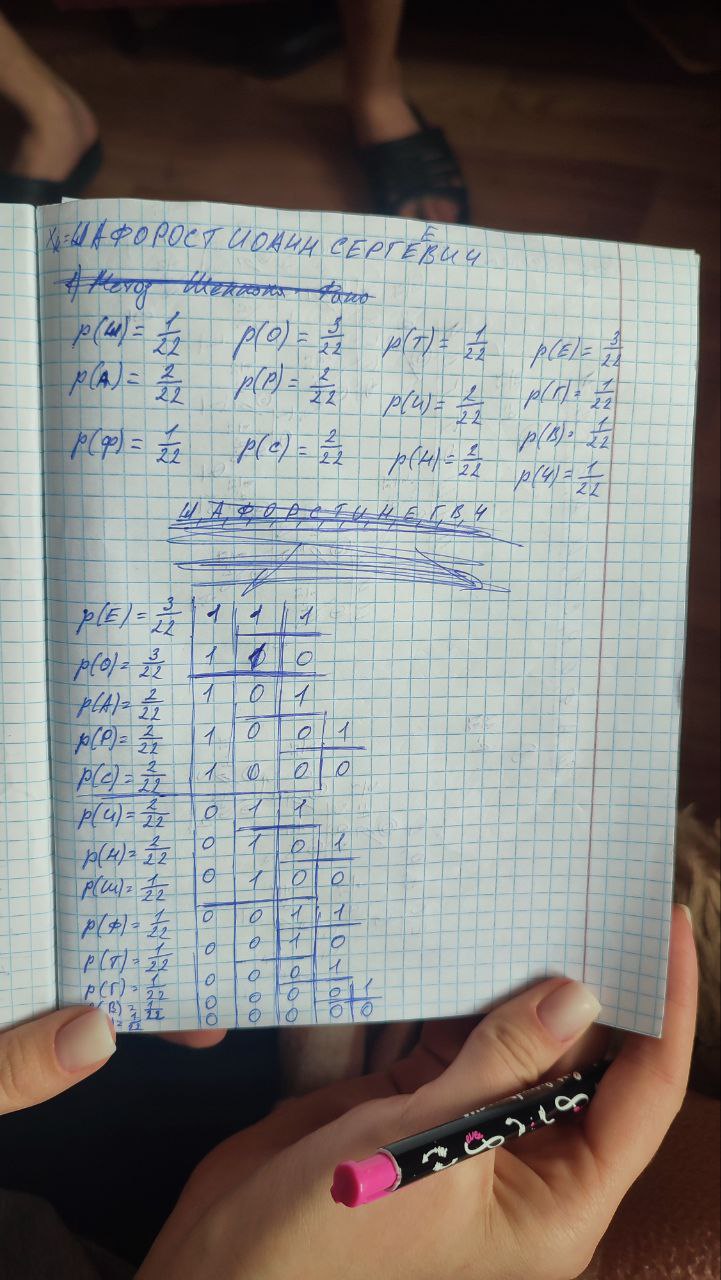 Xk=ШАФОРОСТ ИОАНН СЕРГЕЕВИЧ
1) Метод Шеннона-Фано
p(Ш)= 1/22 p(О)= 3/22 p(Т)= 1/22 p(Е)= 3/22
p(А)= 2/22 p(Р)= 2/22 p(И)= 2/22 p(Г)= 1/22
p(Ф)= 1/22 p(С)= 2/22 p(Н)= 2/22 p(В)= 1/22
p(Ч)= 1/22
Ш, А, Ф, О, Р, С, Т, И, Н, Е, Г, В, Ч
p(Е)= 3/22 1 1 1
p(О)= 3/22 1 1 0
p(А)= 2/22 1 0 1
p(Р)= 2/22 1 0 0 1
p(С)= 2/22 1 0 0 0
p(И)= 2/22 0 1 1
p(Н)= 2/22 0 1 0 1
p(Ш)= 1/22 0 1 0 0
p(Ф)= 1/22 0 0 1 1
p(Т)= 1/22 0 0 1 0
p(Г)= 1/22 0 0 0 1
(В)= 1/22 0 0 0 0 1
= 1/22 0 0 0 0 0